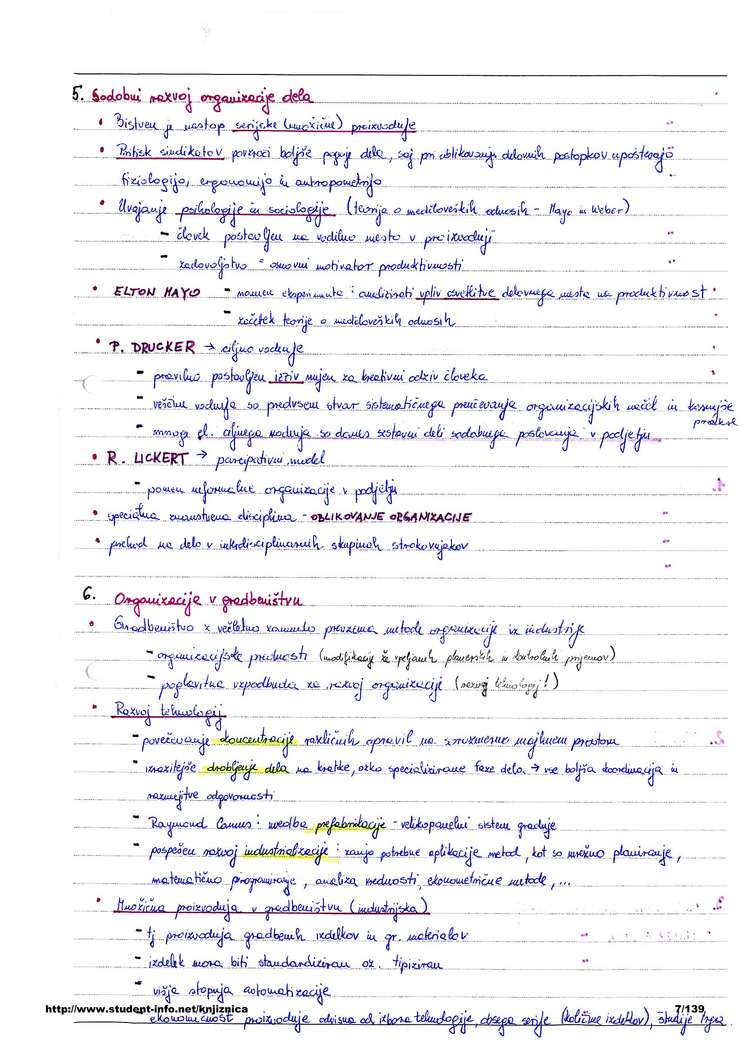 5. Sodobni razvoj organizacije dela
• Bistven je nastop serijske (množične) proizvodnje
• Pritisk sindikatov povzroči boljše pogoje dela, saj pri oblikovanju delovnih postopkov upoštevajo
fiziologijo, ergonomijo in antropometrijo
• Uvajanje psihologije in sociologije (teorija o medčloveških odnosih - Mayo in Weber)
- človek postavljen na vodilno mesto v proizvodnji
- zadovoljstvo = osnovni motivator produktivnosti
• ELTON MAYO - namen eksperimenta: analizirati vpliv osvetlitve delovnega mesta na produktivnost
- začetek teorije o medčloveških odnosih
• P. DRUCKER → ciljno vodenje
- pravilno postavljen izziv nujen za kreativni odziv človeka
- veščine vodenja so predvsem stvar sistematičnega preučevanja organizacijskih načel in kasnejše
- mnogi el. ciljnega vodenja so danes sestavni deli sodobnega poslovanja v podjetju
• R. LICKERT → parcipativni model
- pomen neformalne organizacije v podjetju
• specialna znanstvena disciplina - OBLIKOVANJE ORGANIZACIJE
• prehod na delo v interdisciplinarnih skupinah strokovnjakov
6. Organizacija v gradbeništvu
• Gradbeništvo z večletno zamudo prevzema metode organizacije iz industrije
- organizacijske prednosti (modifikacije že vpeljanih planerskih in kontrolnih prijemov)
- poglavitna vzpodbuda za razvoj organizacije (razvoj tehnologij!)
• Razvoj tehnologij
- povečevanje koncentracije različnih opravil na sorazmerno majhnem prostoru
- izrazitejše drobljenje dela na kratke, ozko specializirane faze dela → vse boljša koordinacija in
razmejitve odgovornosti
- Raymond Camus: uvedba prefabrikacije - velikopanelni sistem gradnje
- pospešen razvoj industrializacije: zanjo potrebne aplikacije metod, kot so mrežno planiranje,
matematično programiranje, analiza vrednosti, ekonometrične metode, ...
• Množična proizvodnja v gradbeništvu (industrijska)
- tj proizvodnja gradbenih izdelkov in gr. materialov
- izdelek mora biti standardiziran oz. tipiziran
- višja stopnja avtomatizacije
http://www.student-info.net/knjiznica 7/139
- ekonomičnost proizvodnje odvisna od izbora tehnologije, obsega serije (količine izdelkov), študije